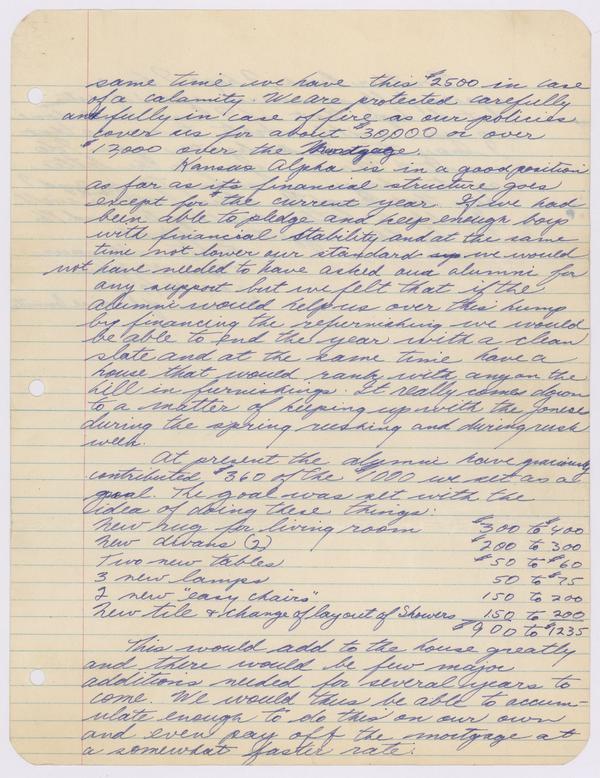 same time we have this $2500 in case
of a calamity. We are protected carefully
and fully in case of fire as our policies
cover us for about $30,000 or over
$17,000 over the Mortgage.
Kansas Alpha is in a good position
as far as its financial structure goes
except for the current year. If we had
been able to pledge and keep enough boys
with financial stability and at the same
time not lower our standard we would
not have needed to have asked our alumni for
any support but we felt that if the
alumni would help us over this hump
by financing the refurnishing we would
be able to end the year with a clean
slate and at the same time have a
house that would rank with any on the
hill in furnishings. It really comes down
to a matter of keeping up with the Jones
during the spring rushing and during rush
week.
At present the alumni have graciously
contributed $360 of the $1000 we set as a
goal. The goal was set with the
idea of doing these things:
New rug for living room $300 to $400
New divans (2) $200 to 300
Two new tables $50 to $60
3 new lamps 50 to $75
2 new "easy chairs" 150 to 200
New tile & change of layout of Showers 150 to 200
$900 to $1235
This would add to the house greatly
and there would be few major
additions needed for several years to
come. We would thus be able to accum-
ulate enough to do this on our own
and even pay off the mortgage at
a somewhat faster rate.